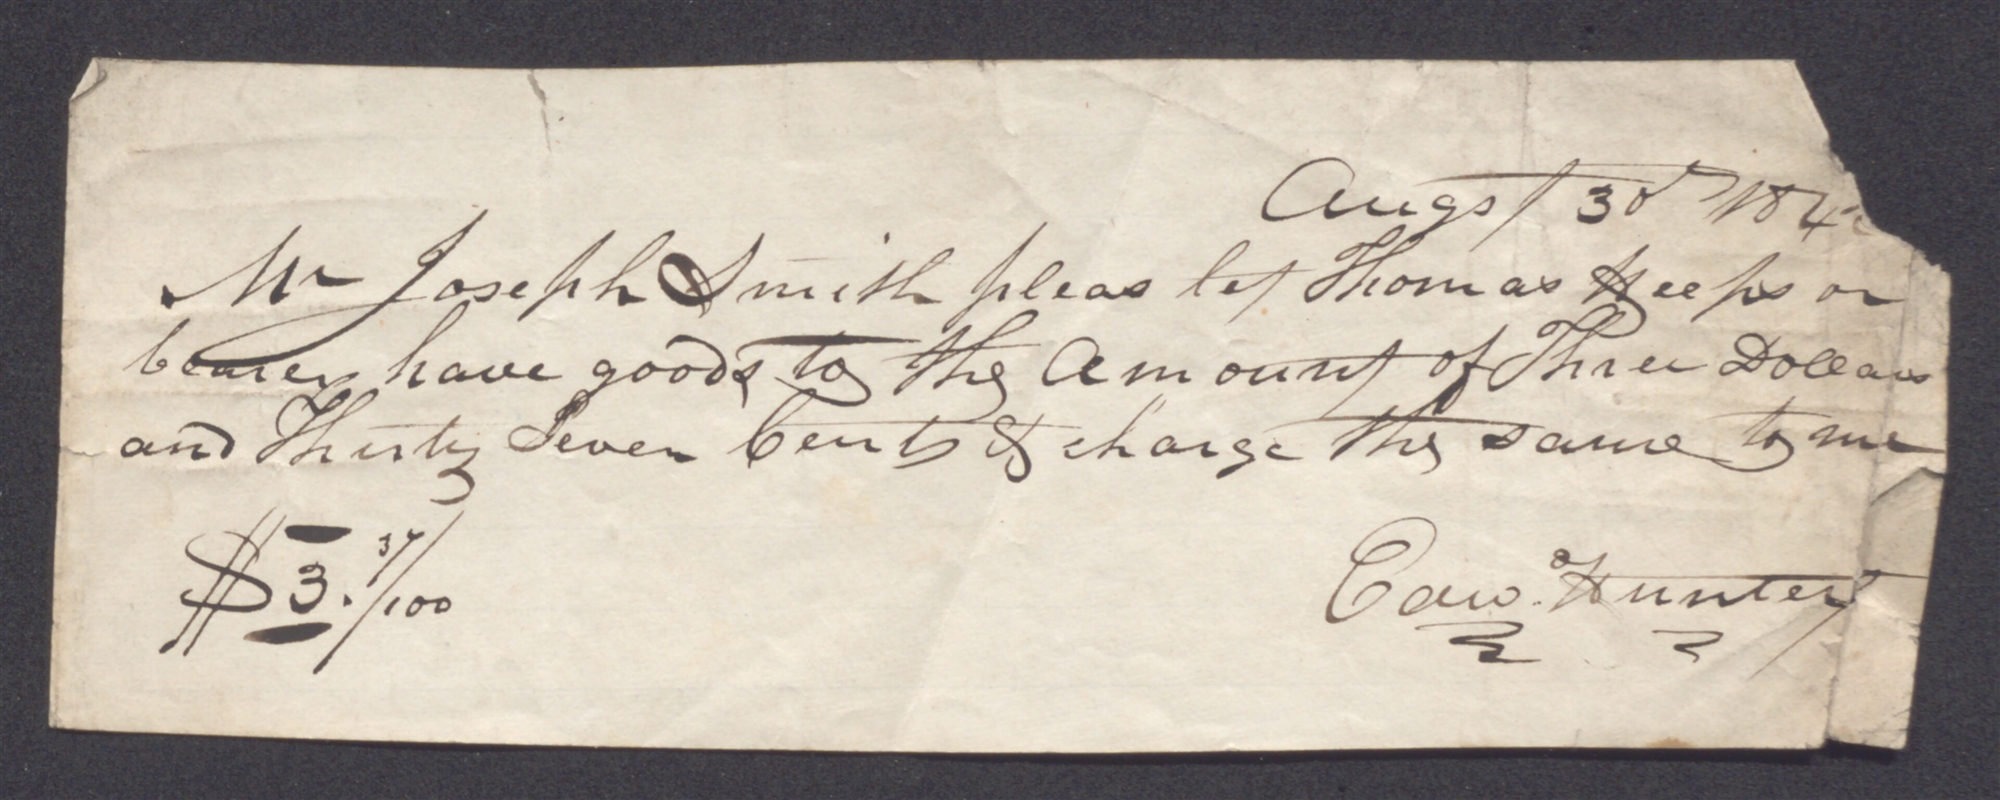 Augst 3d 184
Mr Joseph Smith pleas let Thomas Heeps or
bearer have goods to the Amount of Three Dollars
and Thirty Seven Cents & charge the same to me
$3.37/100
Edwd Hunter